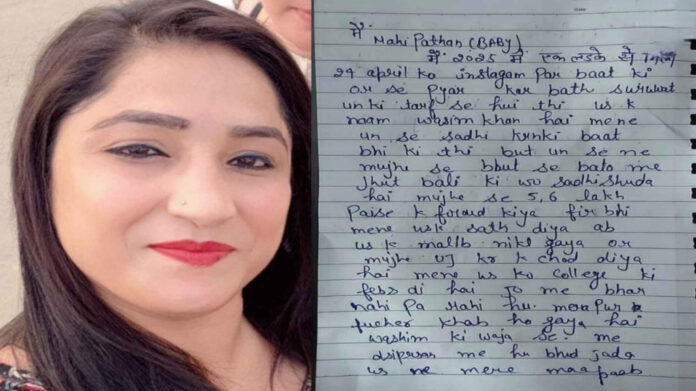 में
Mahi Pathan (BABY)
में 2025 में एक लडके से
29 april ko instagam par baat ki
or se Pyar kar bath suruwat
un ki tarf se hui thi us k
naam wasim khan hai mene
un se sadhi krnki baat
bhi ki thi but un se ne
mujhe se bhut se bato me
Jhut bali ki wo sadhishuda
hai mujhe se 5,6 lakh
Paise k foraud kiya fir bhi
mene usk sath diya ab
us k matlb nikl gaya or
mujhe uj kr k chod diya
hai mene us ko college ki
fess di hai jo me bhar
nahi pa rahi hu. mera pur
fucher khab ho gaya hai
washim ki waja se. me
me hu bhud jada
us ne mere maa paab